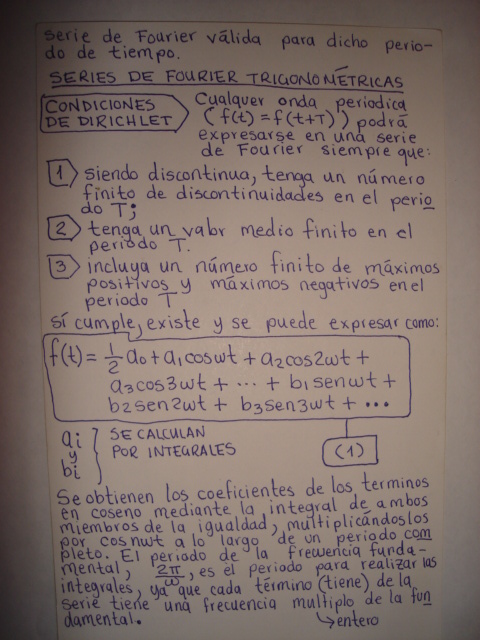 serie de Fourier válida para dicho perio-
do de tiempo.
SERIES DE FOURIER TRIGONOMÉTRICAS
CONDICIONES
DE DIRICHLET
Cualquer onda periodica
(f(t)=f(t+T)) podrá
expresarse en una serie
de Fourier siempre que:
1 siendo discontinua, tenga un número
finito de discontinuidades en el perio
do T;
2 tenga un valor medio finito en el
periodo T.
3 incluya un número finito de máximos
positivos y máximos negativos en el
periodo T
Sí cumple, existe y se puede expresar como:
f(t) = 1/2 a0 + a1 cos wt + a2 cos 2wt +
a3 cos 3wt + ... + b1 sen wt +
b2 sen 2wt + b3 sen 3wt + ...
(1)
ai
y
bi
} SE CALCULAN
POR INTEGRALES
Se obtienen los coeficientes de los terminos
en coseno mediante la integral de ambos
miembros de la igualdad, multiplicándoslos
por cos nwt a lo largo de un periodo com
pleto. El periodo de la frecuencia funda-
mental, 2π/w, es el periodo para realizar las
integrales, ya que cada término (tiene) de la
serie tiene una frecuencia multiplo de la fun
damental.
→entero